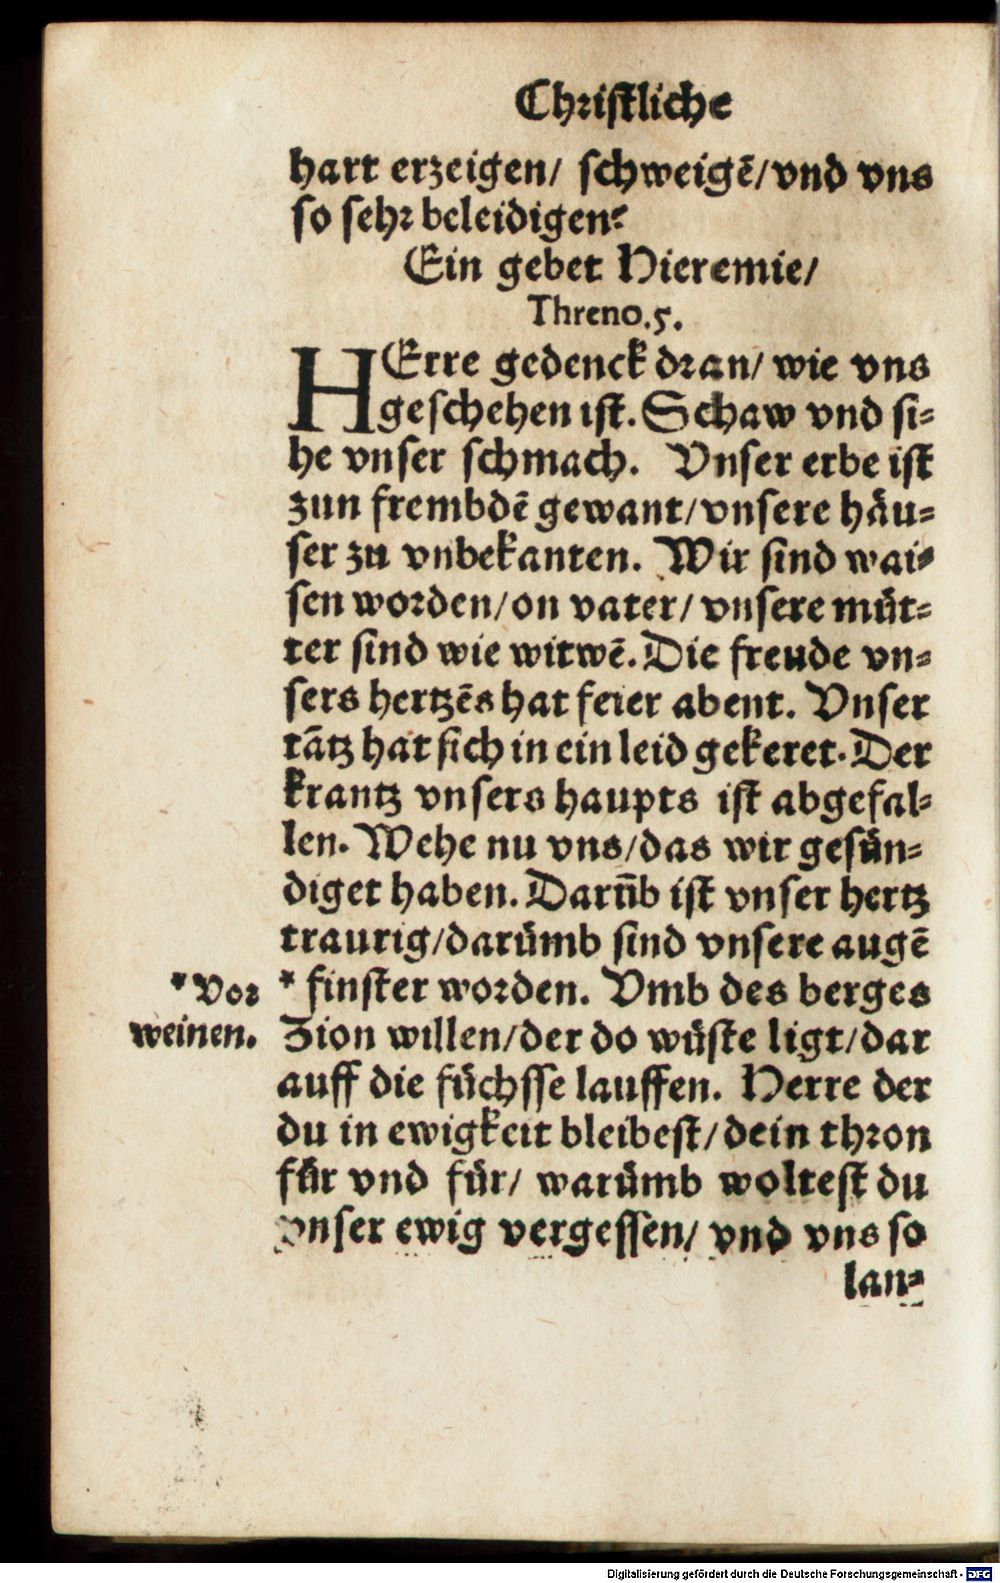 Christliche
hart erzeigen/ schweigẽ/vnd vns
so sehr beleidigen?
Ein gebet Hieremie/
Threno.5.
HErre gedenck dran/ wie vns
geschehen ist. Schaw vnd si-
he vnser schmach. Vnser erbe ist
zun frembdẽ gewant/vnsere häu-
ser zu vnbekanten. Wir sind wai-
sen worden/on vater/ vnsere müt-
ter sind wie witwẽ. Die freude vn-
sers hertzẽs hat feier abent. Vnser
tãtz hat sich in ein leid gekeret. Der
krantz vnsers haupts ist abgefal-
len. Wehe nu vns/das wir gesün-
diget haben. Darũb ist vnser hertz
traurig/darümb sind vnsere augẽ
*Vor
weinen.
* finster worden. Vmb des berges
Zion willen/der do wüste ligt/dar
auff die füchsse lauffen. Herre der
du in ewigkeit bleibest/dein thron
für vnd für/ warümb woltest du
vnser ewig vergessen/ vnd vns so
lan-
Digitalisierung gefördert durch die Deutsche Forschungsgemeinschaft - DFG